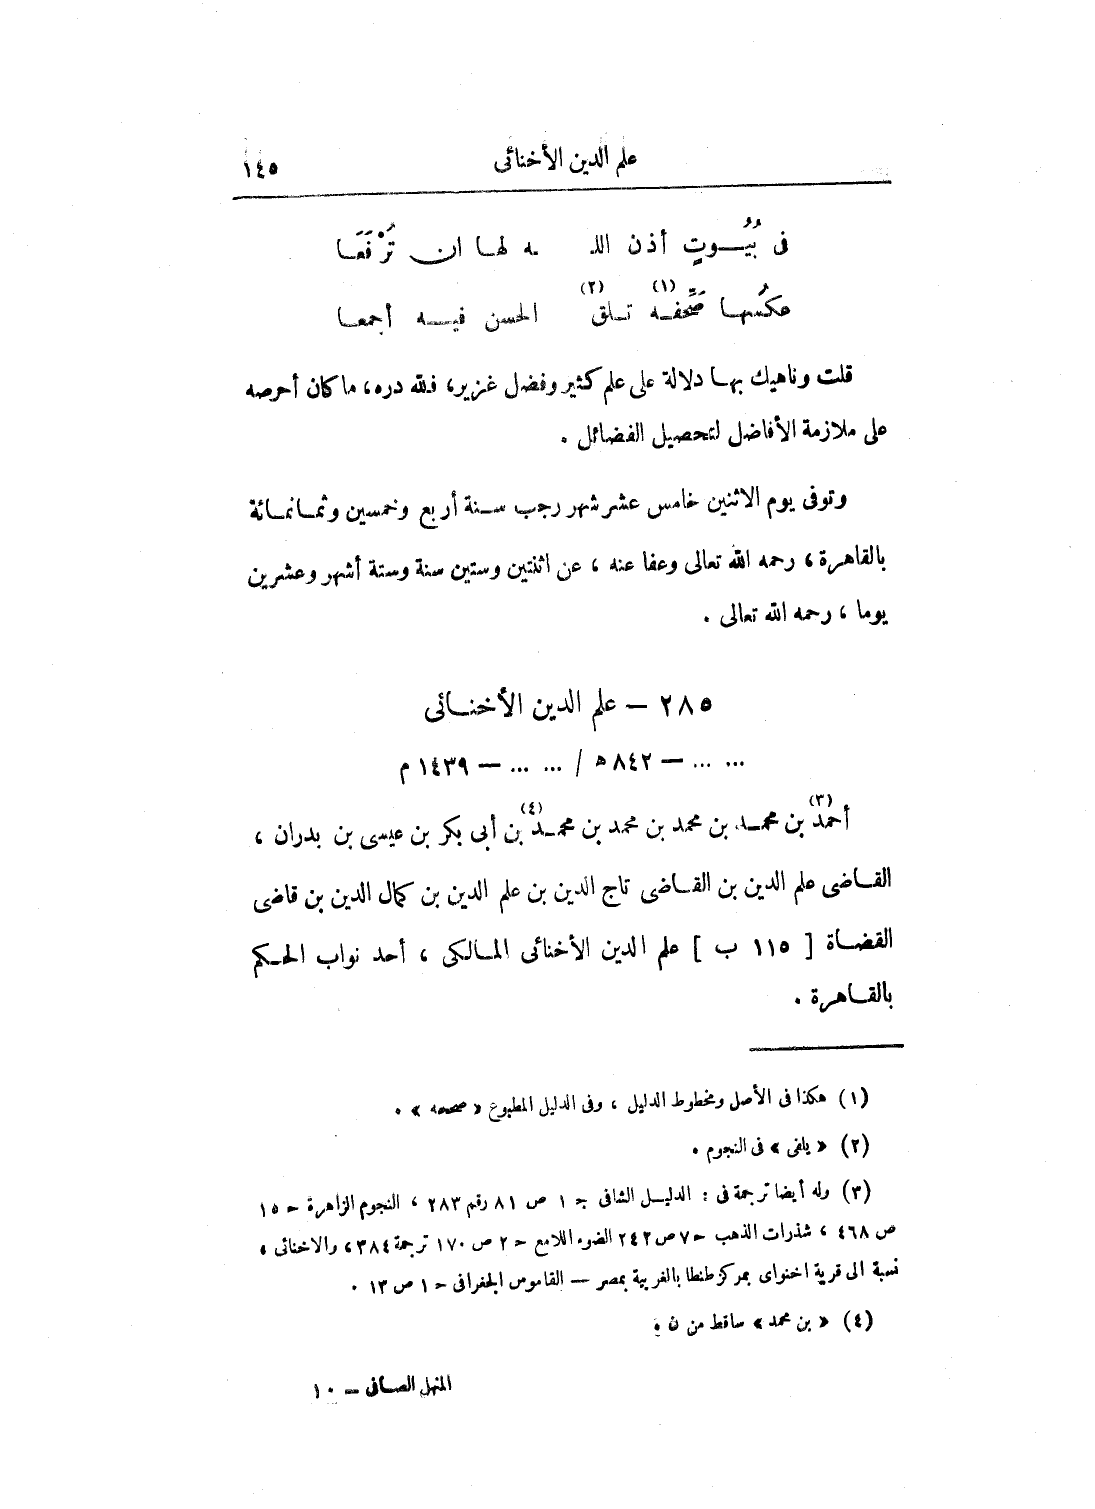 علم الدين الأخنائى ١٤٥
فى بُيُوتٍ أذن اللـ ـه لهـا ان تُرْفَعَا
عكسُهـا صَحِّفـه تـلق الحسن فيـه أجمعـا
(١) (٢)
قلت وناهيك بهـا دلالة على علم كثير وفضل غزير، فلله دره، ما كان أحرصه
على ملازمة الأفاضل لتحصيل الفضائل .
وتوفى يوم الاثنين خامس عشر شهر رجب سـنة أربع وخمسين وثمـانمـائة
بالقاهرة ، رحمه الله تعالى وعفا عنه ، عن اثنتين وستين سنة وستة أشهر وعشرين
يوما ، رحمه الله تعالى .
٢٨٥ – علم الدين الأخنـائى
... ... – ٨٤٢ هـ / ... ... – ١٤٣٩ م
أحمد(٣) بن محمـد بن محمد بن محمد بن محمـد(٤) بن أبى بكر بن عيسى بن بدران ،
القـاضى علم الدين بن القـاضى تاج الدين بن علم الدين بن كمال الدين بن قاضى
القضـاة [ ١١٥ ب ] علم الدين الأخنائى المـالكى ، أحد نواب الحـكم
بالقـاهرة .
(١) هكذا فى الأصل ومخطوط الدليل ، وفى الدليل المطبوع « صححه » .
(٢) « يلفى » فى النجوم .
(٣) وله أيضا ترجمة فى : الدليـل الشافى جـ ١ ص ٨١ رقم ٢٨٣ ، النجوم الزاهرة جـ ١٥
ص ٤٦٨ ، شذرات الذهب جـ ٧ ص ٢٤٢ الضوء اللامع جـ ٢ ص ١٧٠ ترجمة ٣٨٤ ، والاخنائى ،
نسبة الى قرية اخنواى بمركز طنطا بالغربية بمصر – القاموس الجغرافى جـ ١ ص ١٣ .
(٤) « بن محمد » ساقط من ن .
المنهل الصـافى – ١٠